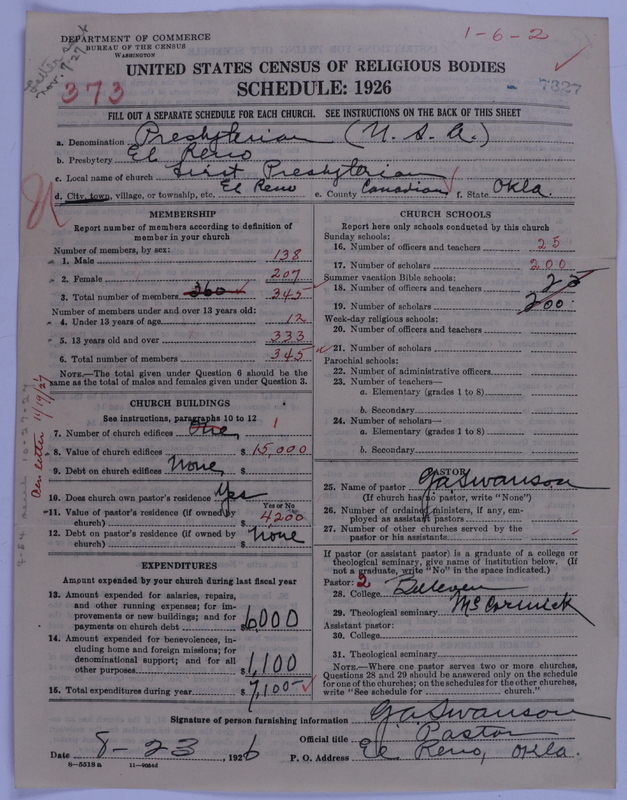 DEPARTMENT OF COMMERCE
BUREAU OF THE CENSUS
WASHINGTON
1-6-2
Nov. 9-27
373
7327
UNITED STATES CENSUS OF RELIGIOUS BODIES
SCHEDULE: 1926
FILL OUT A SEPARATE SCHEDULE FOR EACH CHURCH. SEE INSTRUCTIONS ON THE BACK OF THIS SHEET
a. Denomination Presbyterian (U. S. A.)
b. Presbytery El Reno
c. Local name of church First Presbyterian
d. City, town, village, or township, etc. El Reno e. County Canadian f. State Okla.
MEMBERSHIP
Report number of members according to definition of
member in your church
Number of members, by sex:
1. Male 138
2. Female 207
3. Total number of members 360 345
Number of members under and over 13 years old:
4. Under 13 years of age 12
5. 13 years old and over 333
6. Total number of members 345
NOTE.—The total given under Question 6 should be the
same as the total of males and females given under Question 3.
CHURCH BUILDINGS
See instructions, paragraphs 10 to 12
7. Number of church edifices One 1
8. Value of church edifices $ 15,000
9. Debt on church edifices None $
10. Does church own pastor's residence Yes
Yes or No
11. Value of pastor's residence (if owned by
church) $ 4200
12. Debt on pastor's residence (if owned by
church) $ None
EXPENDITURES
Amount expended by your church during last fiscal year
13. Amount expended for salaries, repairs,
and other running expenses; for im-
provements or new buildings; and for
payments on church debt $ 6,000
14. Amount expended for benevolences, in-
cluding home and foreign missions; for
denominational support; and for all
other purposes $ 1,100
15. Total expenditures during year $ 7,100-
CHURCH SCHOOLS
Report here only schools conducted by this church
Sunday schools:
16. Number of officers and teachers 25
17. Number of scholars 200
Summer vacation Bible schools:
18. Number of officers and teachers 25
19. Number of scholars 200
Week-day religious schools:
20. Number of officers and teachers
21. Number of scholars
Parochial schools:
22. Number of administrative officers
23. Number of teachers—
a. Elementary (grades 1 to 8)
b. Secondary
24. Number of scholars—
a. Elementary (grades 1 to 8)
b. Secondary
PASTOR
25. Name of pastor G A Swanson
(If church has no pastor, write "None")
26. Number of ordained ministers, if any, em-
ployed as assistant pastors
27. Number of other churches served by the
pastor or his assistants
If pastor (or assistant pastor) is a graduate of a college or
theological seminary, give name of institution below. (If
not a graduate, write "No" in the space indicated.)
Pastor: 2
28. College
29. Theological seminary McCormick
Assistant pastor:
30. College
31. Theological seminary
NOTE.—Where one pastor serves two or more churches,
Questions 28 and 29 should be answered only on the schedule
for one of the churches; on the schedules for the other churches,
write "See schedule for church."
Signature of person furnishing information G A Swanson
Official title Pastor
Date 8-23, 1926 P. O. Address El Reno, Okla.
8—5518 a 11—9084d
Per letter 11/19/27
10-27-27